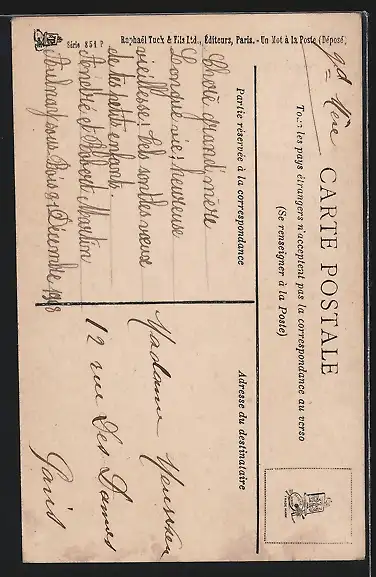 Série 851 P
Raphaël Tuck & Fils Ltd., Éditeurs, Paris. - Un Mot à la Poste (Déposé)
Gd Mère
CARTE POSTALE
Tous les pays étrangers n'acceptent pas la correspondance au verso
(Se renseigner à la Poste)
Partie réservée à la correspondance
Adresse du destinataire
Chère grand'mère
Longue vie; heureuse
vieillesse! tels sont les vœux
de tes petit enfants.
et Robert Martin
Aulnay sous Bois 31 Décembre 1908
Madame
12 rue des Dames
Paris